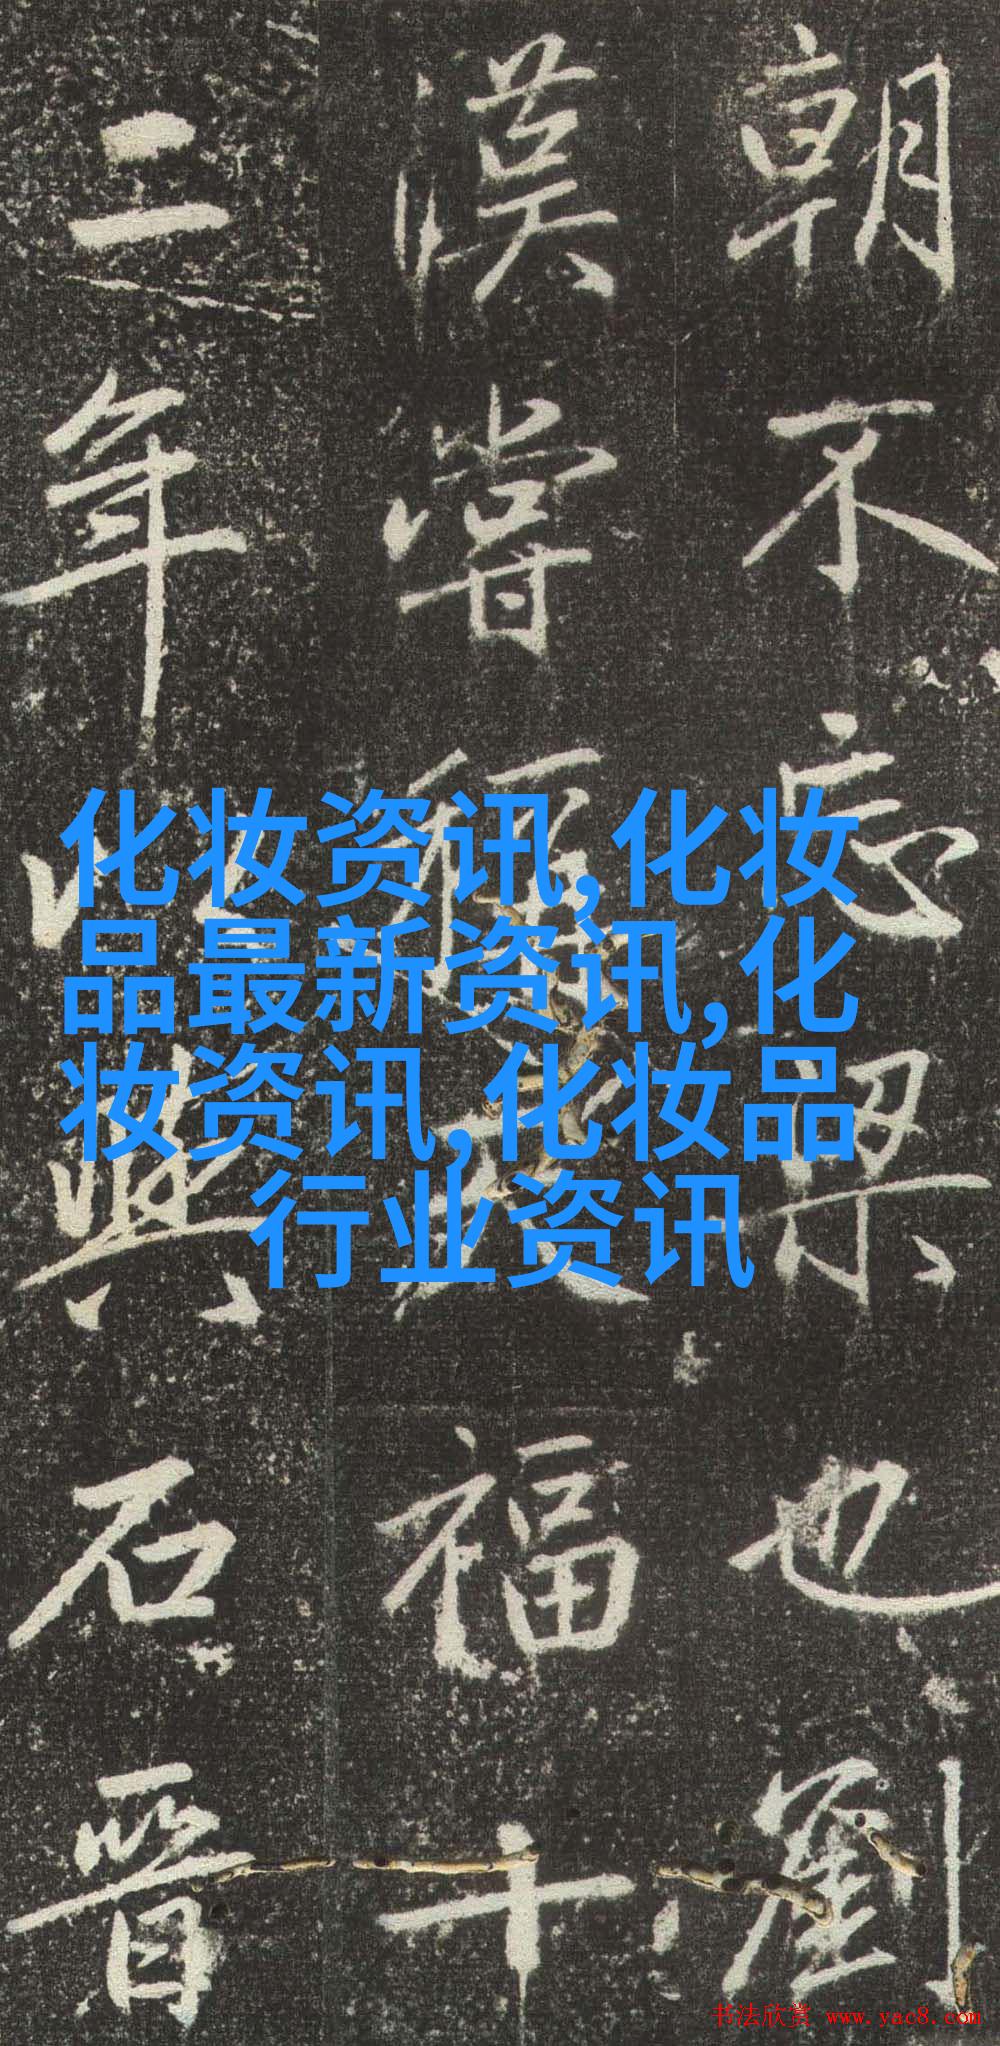 朝不忘梁也劉
漢嘗稱天福十
二年以與石晉
化妆资讯,化妆
品最新资讯,化
妆资讯,化妆品
行业资讯
书法欣赏 www.yac8.com